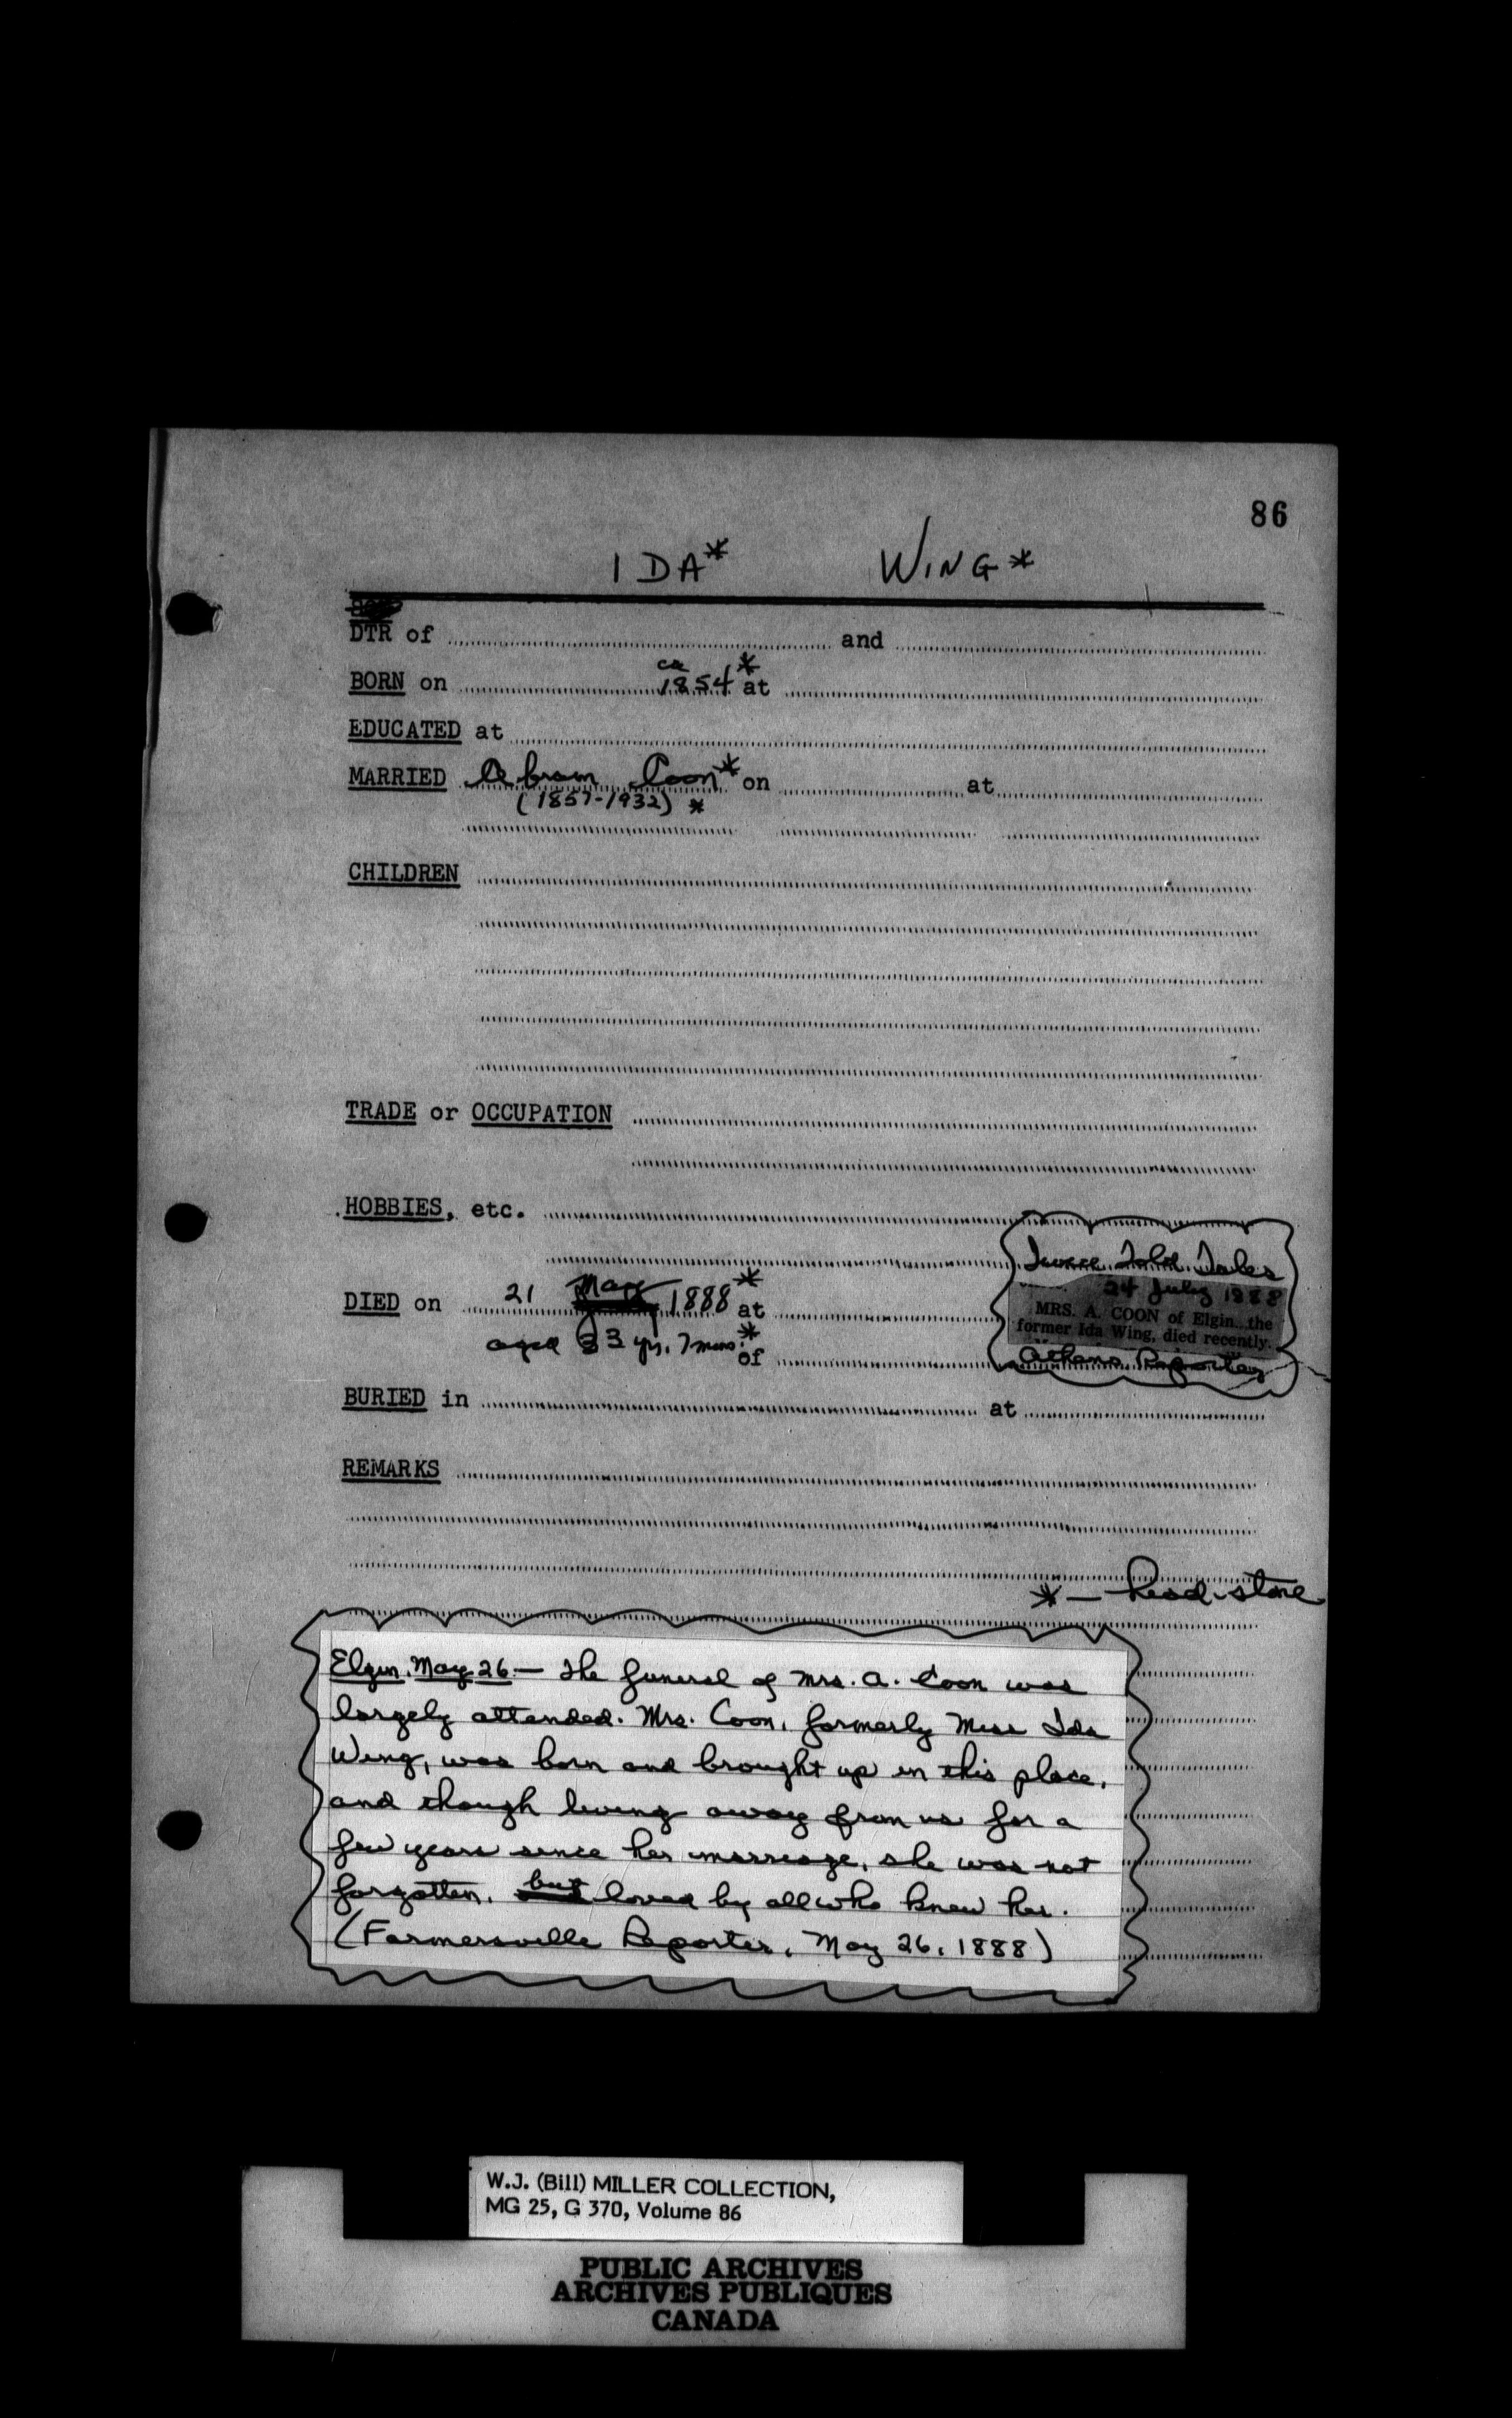 86
IDA* WING*
DTR of and
BORN on ca 1854* at
EDUCATED at
MARRIED Abram Coon* on at
(1857-1932) *
CHILDREN
TRADE or OCCUPATION
HOBBIES, etc.
Twice Told Tales
24 July 1888
DIED on 21 May 1888* at
MRS. A. COON of Elgin, the
former Ida Wing, died recently.
aged 33 yrs. 7 mos.* of
Athens Reporter
BURIED in at
REMARKS
* — head-stone
Elgin, May 26 — The funeral of Mrs. A. Coon was
largely attended. Mrs. Coon, formerly Miss Ida
Wing, was born and brought up in this place,
and though living away from us for a
few years since her marriage, she was not
forgotten, but loved by all who knew her.
(Farmersville Reporter, May 26, 1888)
W.J. (Bill) MILLER COLLECTION,
MG 25, G 370, Volume 86
PUBLIC ARCHIVES
ARCHIVES PUBLIQUES
CANADA